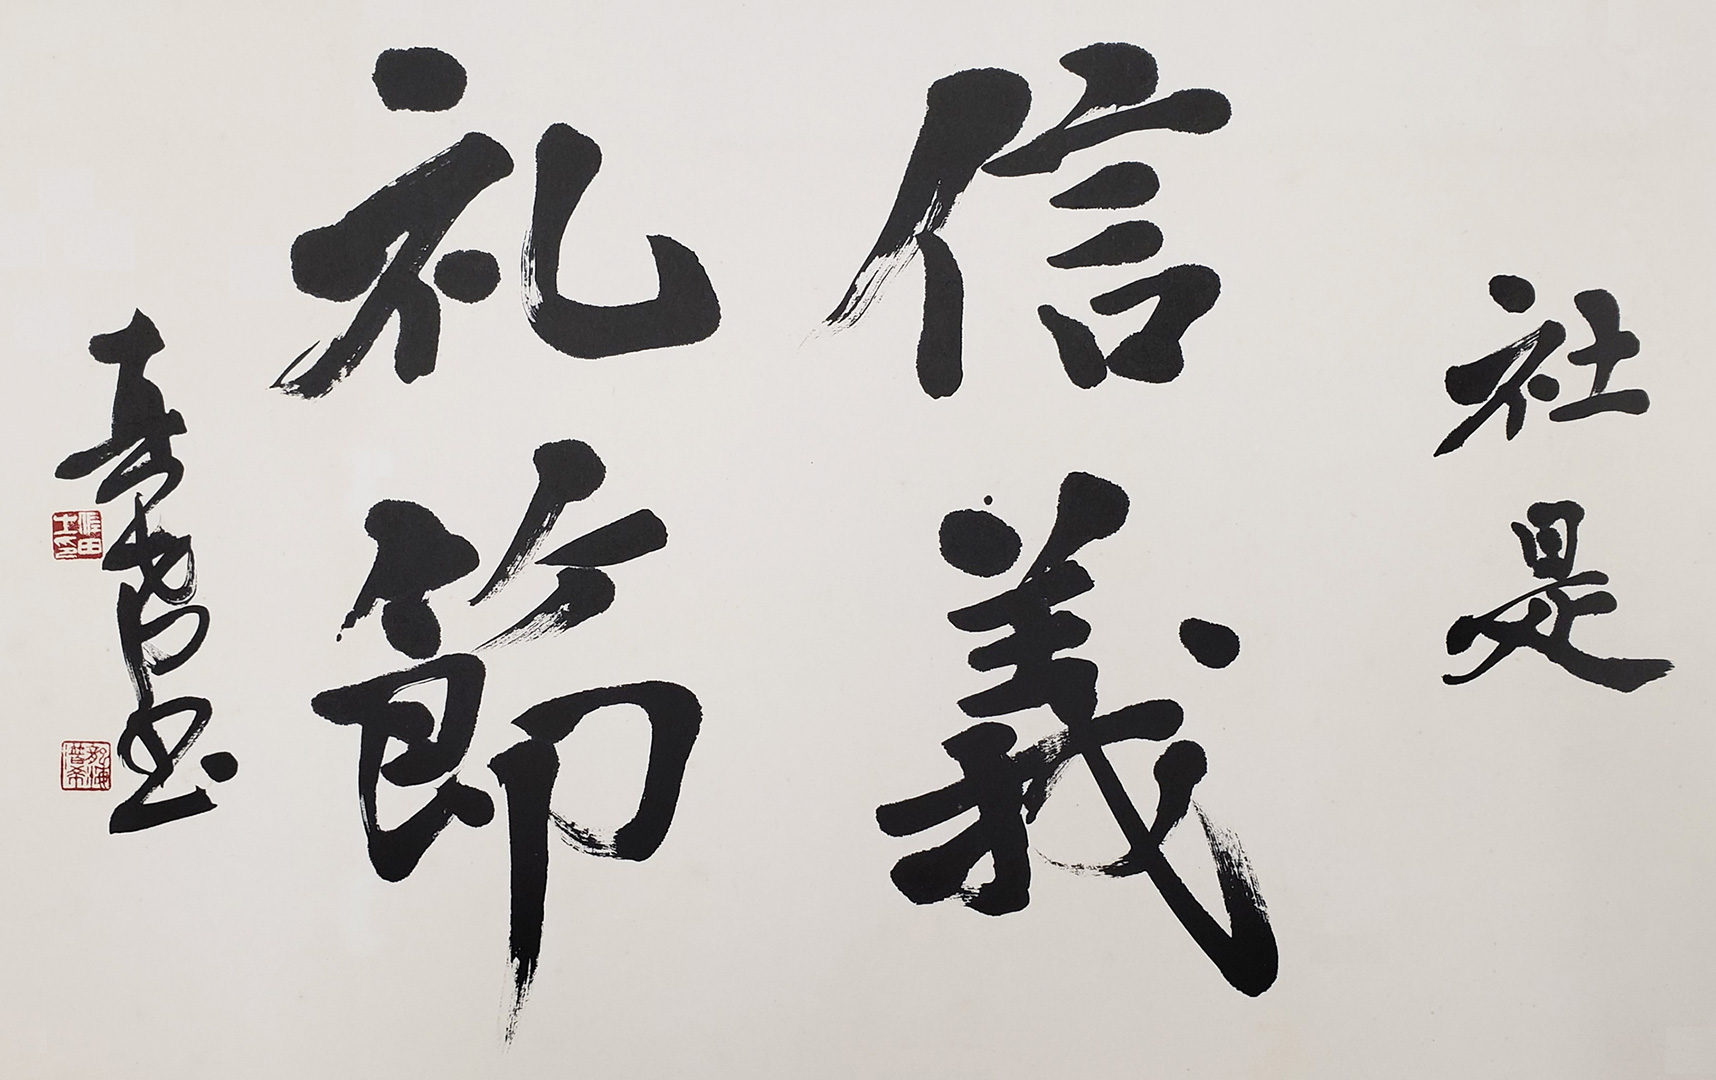 社是
信義
礼節
書